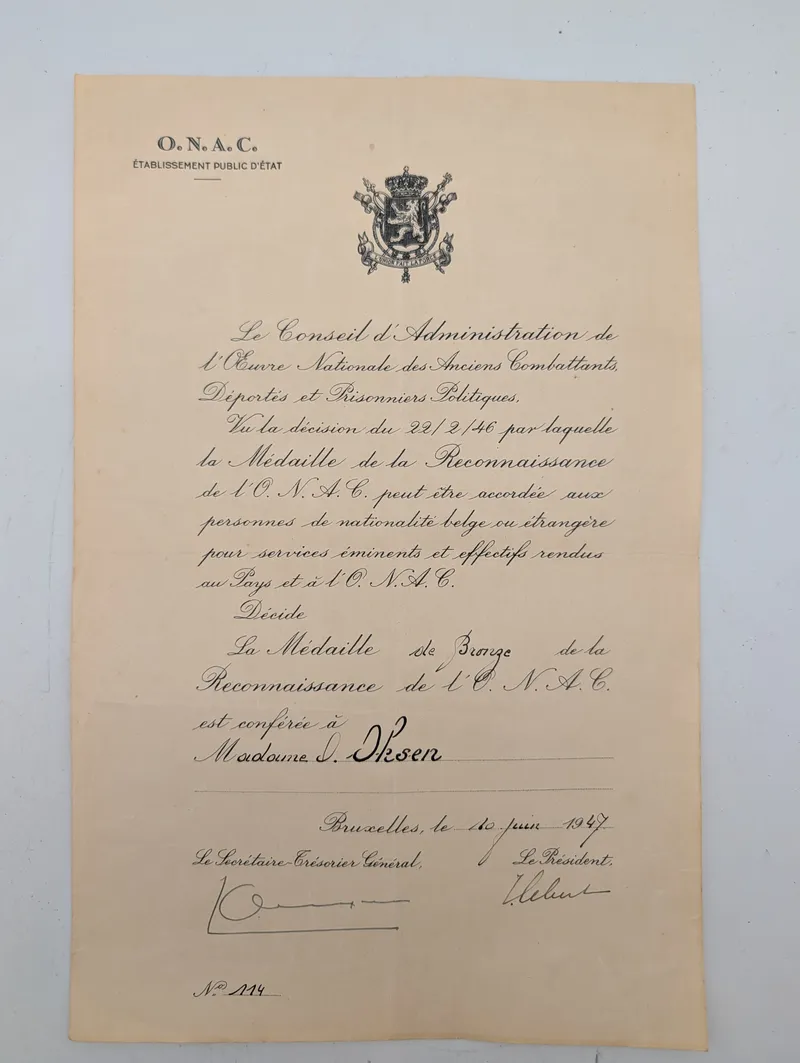 O. N. A. C.
ÉTABLISSEMENT PUBLIC D'ÉTAT
L'UNION FAIT LA FORCE
Le Conseil d'Administration de
l'Œuvre Nationale des Anciens Combattants,
Déportés et Prisonniers Politiques,
Vu la décision du 22/2/46 par laquelle
la Médaille de la Reconnaissance
de l'O. N. A. C. peut être accordée aux
personnes de nationalité belge ou étrangère
pour services éminents et effectifs rendus
au Pays et à l'O. N. A. C.
Décide
La Médaille de Bronze de la
Reconnaissance de l'O. N. A. C.
est conférée à
Madame O. Oksen
Bruxelles, le 10 juin 1947
Le Secrétaire-Trésorier Général, Le Président,
N° 114